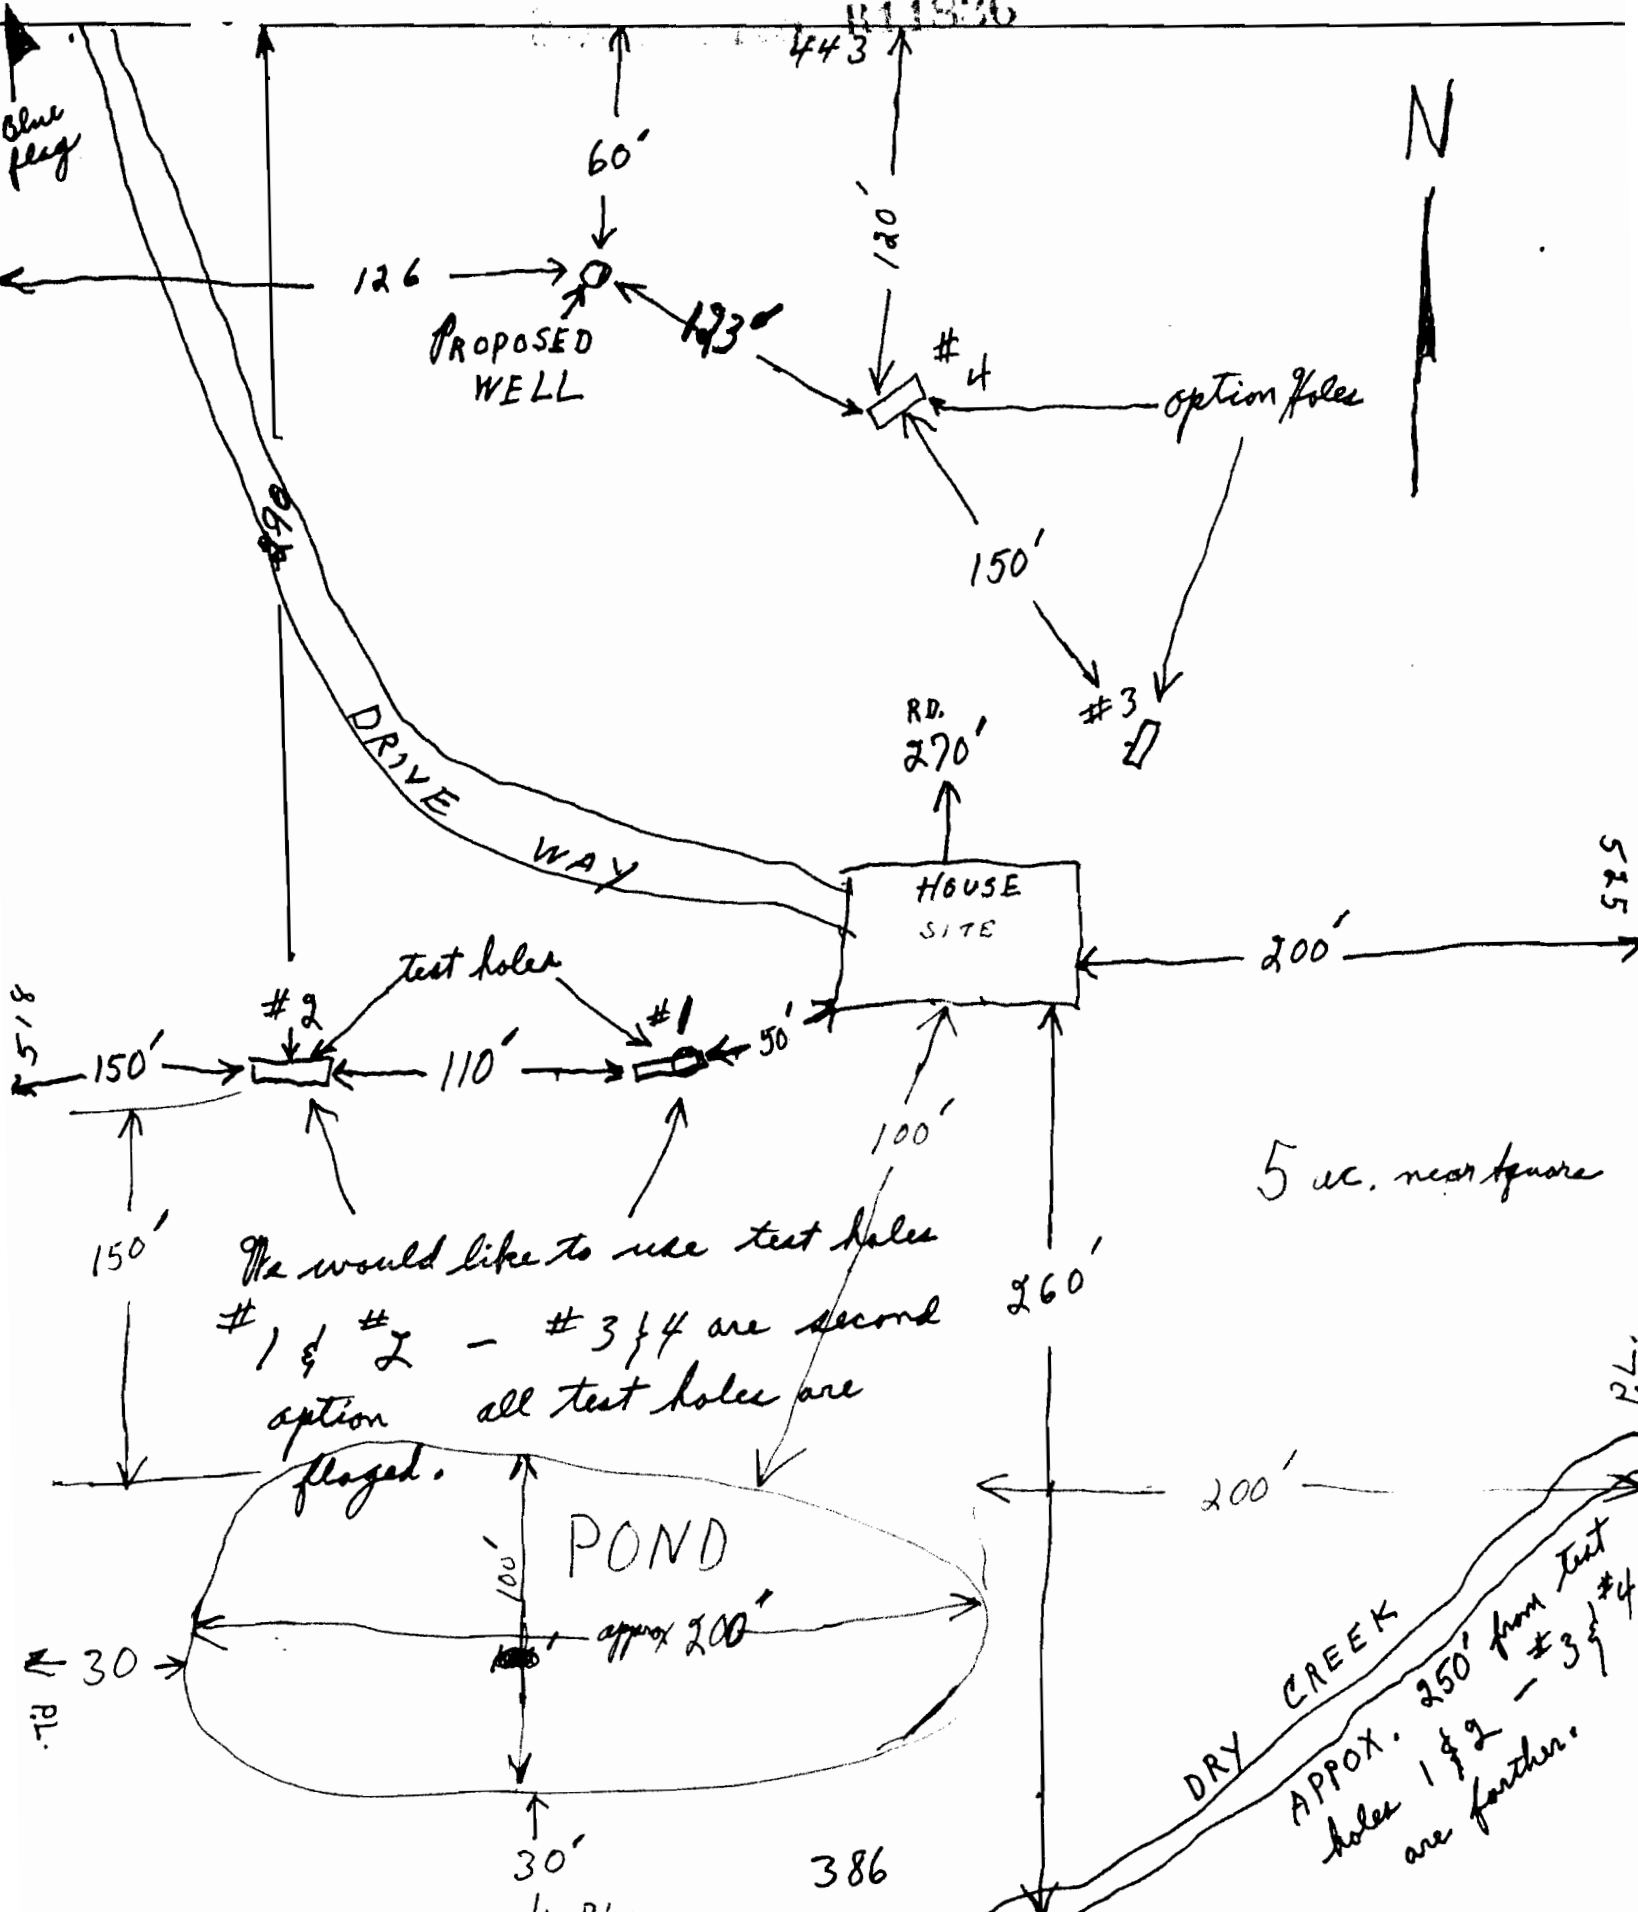 R11836
443
Blue
flag
N
60'
120'
126
PROPOSED
WELL
193'
# 4
option Holes
150'
#3
DRIVE WAY
RD.
270'
HOUSE
SITE
525
200'
test holes
#2
#1
518
150'
110'
50'
100'
5 ac. near square
150'
260'
We would like to use test holes
#1 & #2 - #3 & 4 are second
option all test holes are
flaged.
200'
POND
100'
approx 200'
30
P.L.
DRY CREEK
APPOX. 250' from test
holes 1 & 2 - #3 & #4
are farther.
30'
386